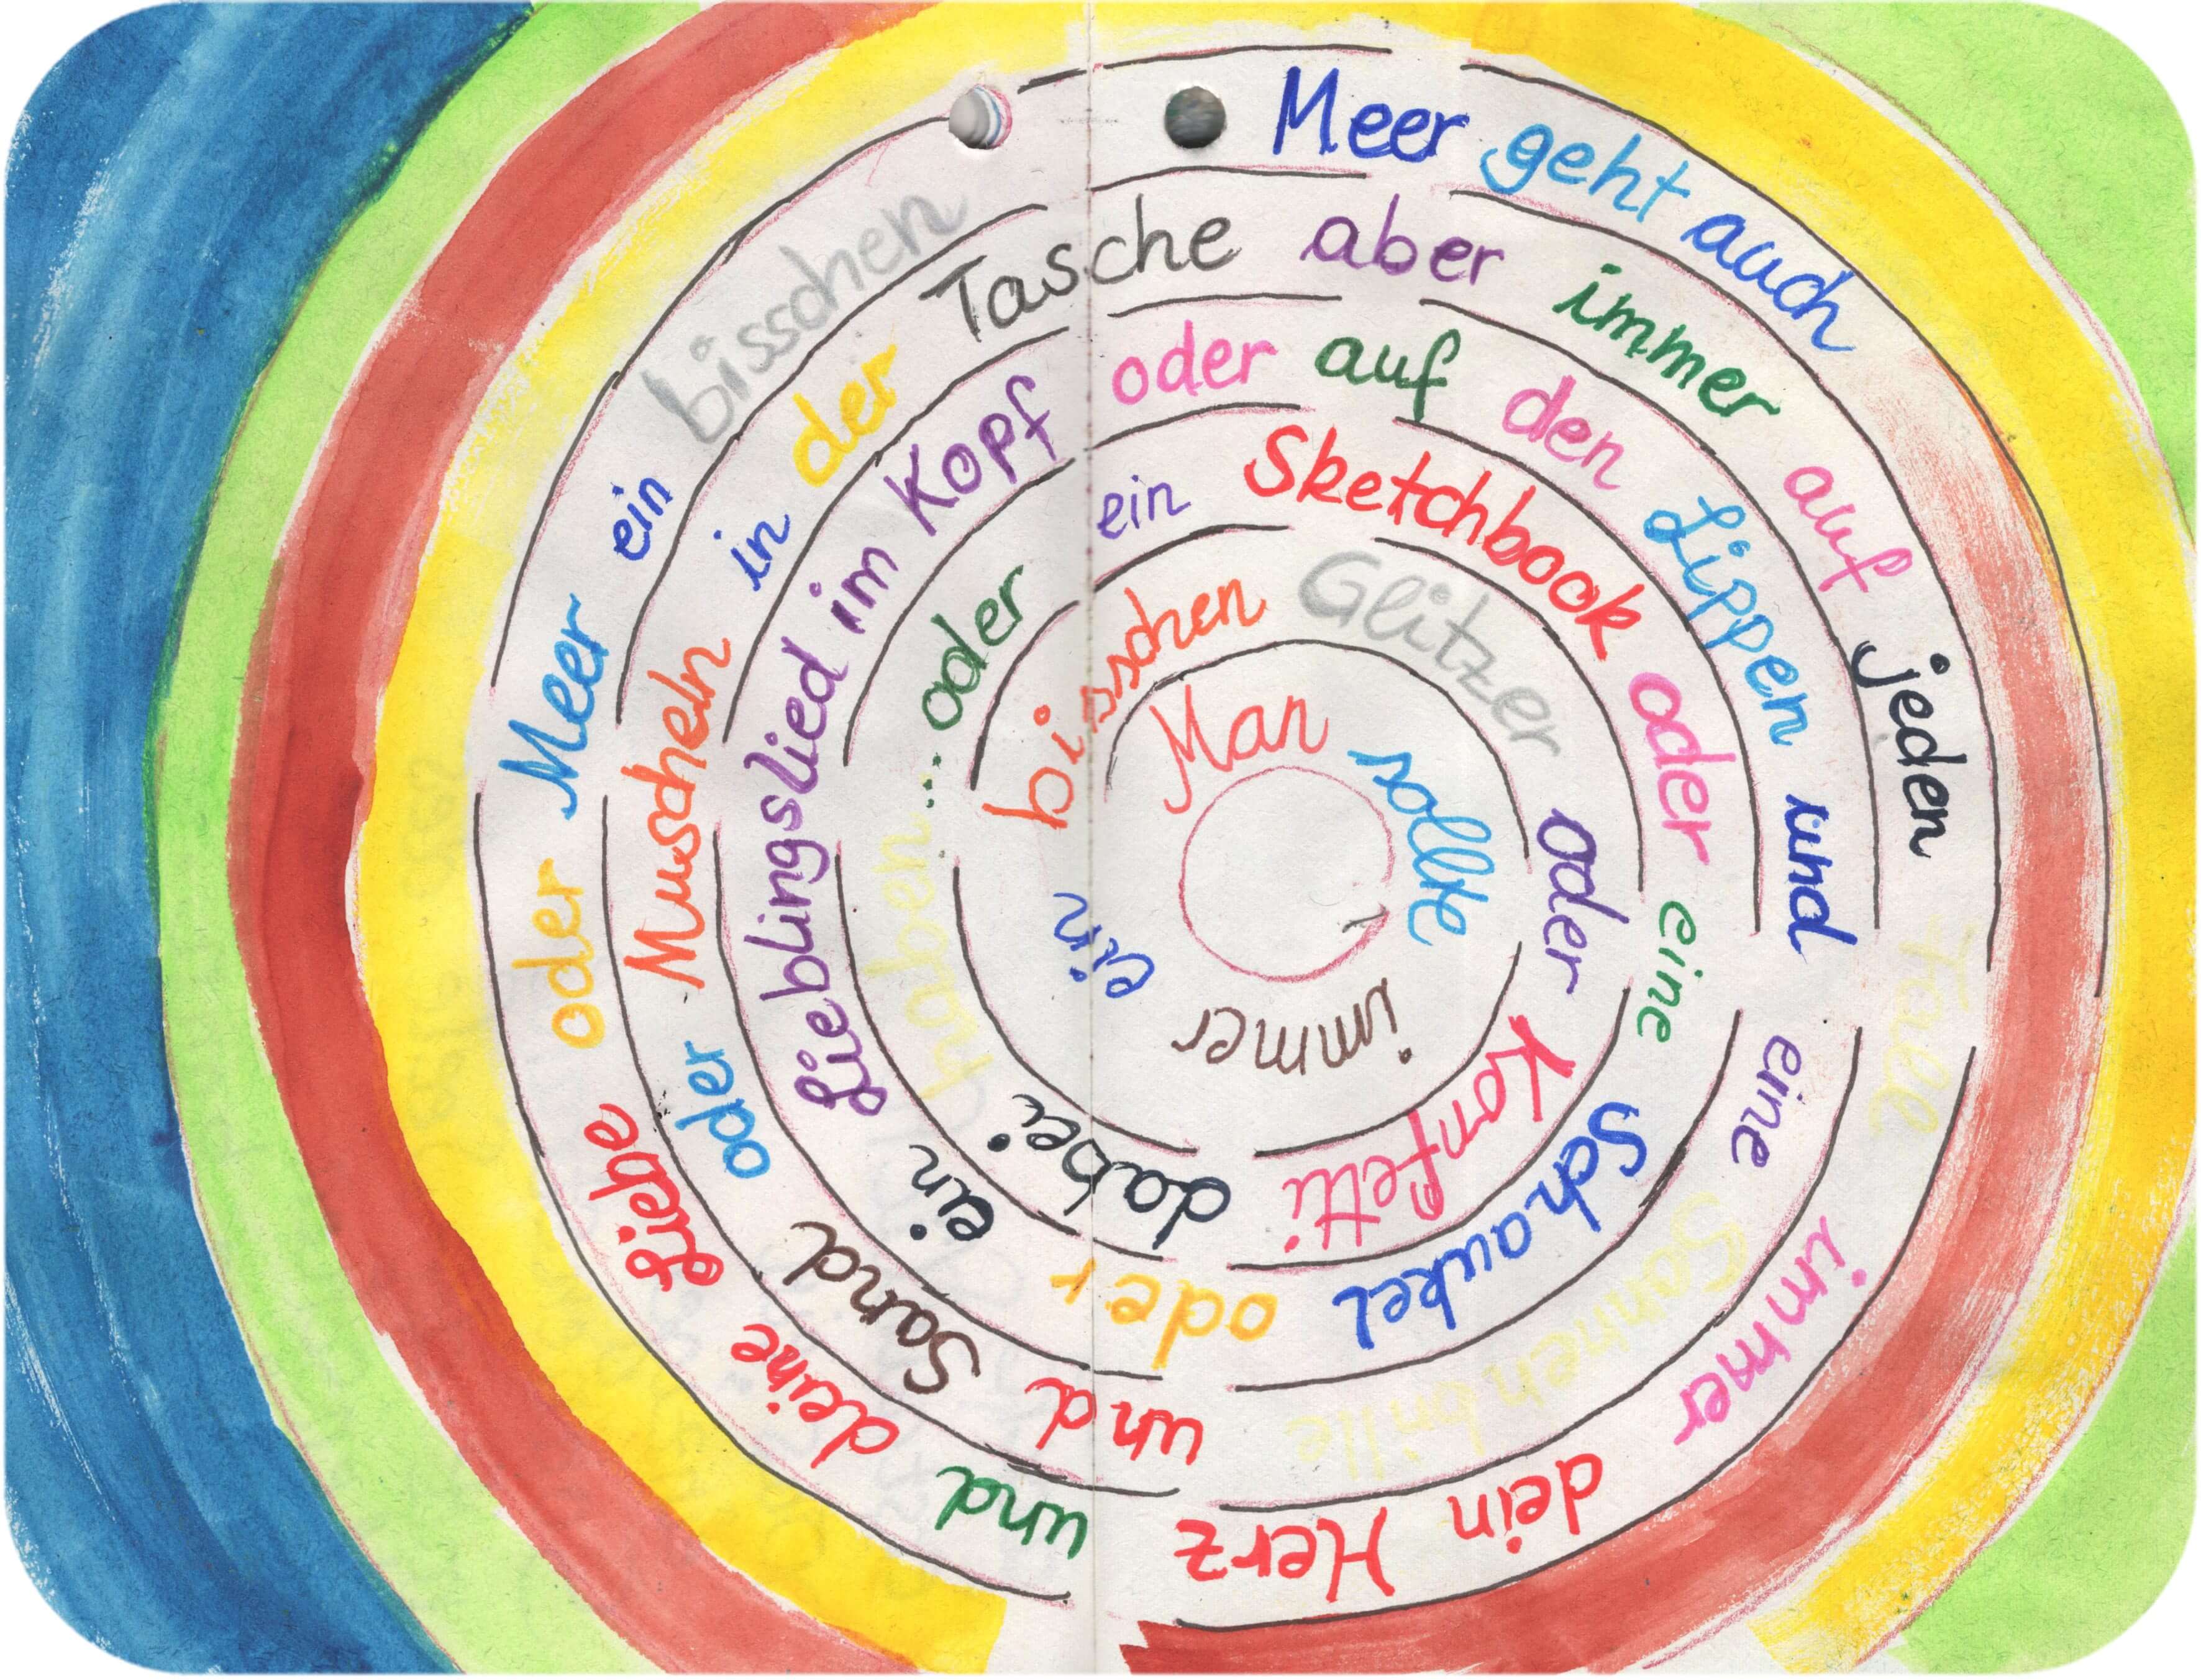 Man sollte immer ein
bisschen Glitzer oder Konfetti dabei haben...
oder ein Sketchbook oder eine Schaukel oder ein
Lieblingslied im Kopf oder auf den Lippen und eine Sonnenbrille und Sand
oder Muscheln in der Tasche aber immer auf jeden Fall immer dein Herz und deine Liebe
oder Meer ein bisschen Meer geht auch